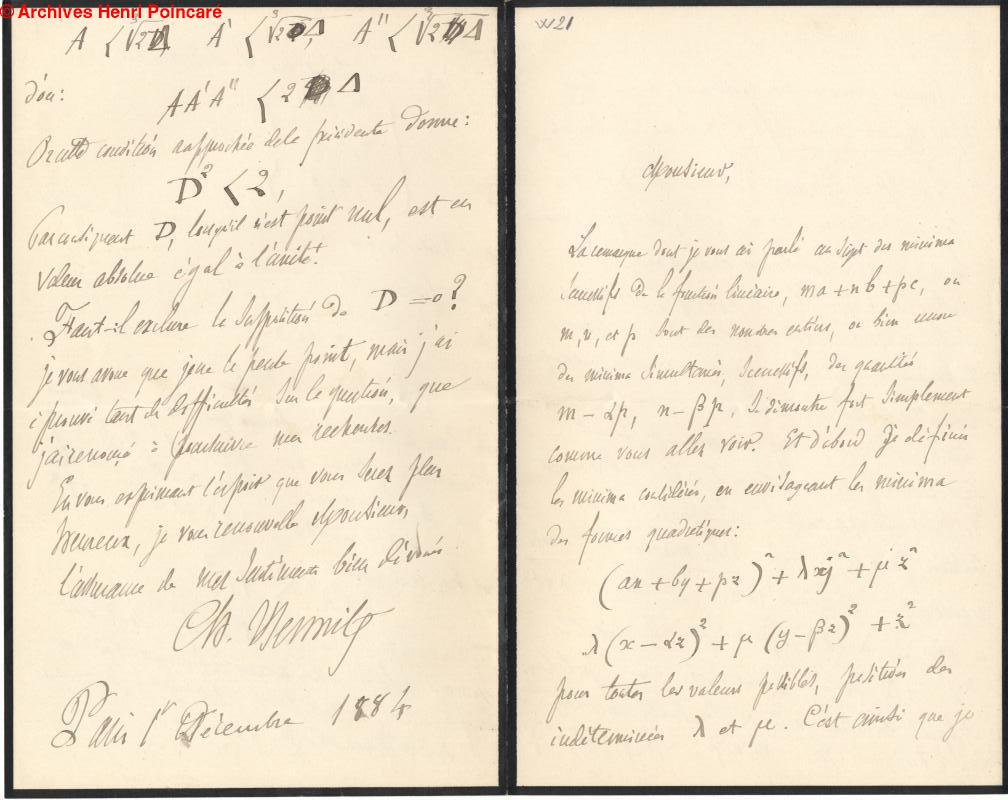 © Archives Henri Poincaré
W21
Monsieur,
La remarque dont je vous ai parlé au sujet des minima
successifs de la fonction linéaire, ma + nb + pc, où
m, n, et p sont des nombres entiers, ou bien encore
des minima simultanés, successifs, des quantités
m - αp, n - βp, se démontre fort simplement
comme vous allez voir. Et d'abord je définis
les minima considérés, en envisageant les minima
des formes quadratiques:
(ax + by + pz)² + λxy² + μz²
λ(x - αz)² + μ(y - βz)² + z²
pour toutes les valeurs possibles, positives des
indéterminées λ et μ. C'est ainsi que je
A < ∛2Δ, A' < ∛2Δ, A'' < ∛2Δ
d'où:
AA'A'' < 2Δ
Or cette condition rapprochée de la précédente donne:
D² < 2,
Par conséquent D, lorsqu'il n'est point nul, est en
valeur absolue égal à l'unité.
Faut-il exclure la supposition de D = 0?
je vous avoue que je ne le pense point, mais j'ai
éprouvé tant de difficultés sur la question, que
j'ai renoncé à poursuivre mes recherches.
En vous exprimant l'espoir que vous serez plus
heureux, je vous renouvelle Monsieur,
l'assurance de mes sentiments bien dévoués
Ch. Hermite
Paris 1r Décembre 1884